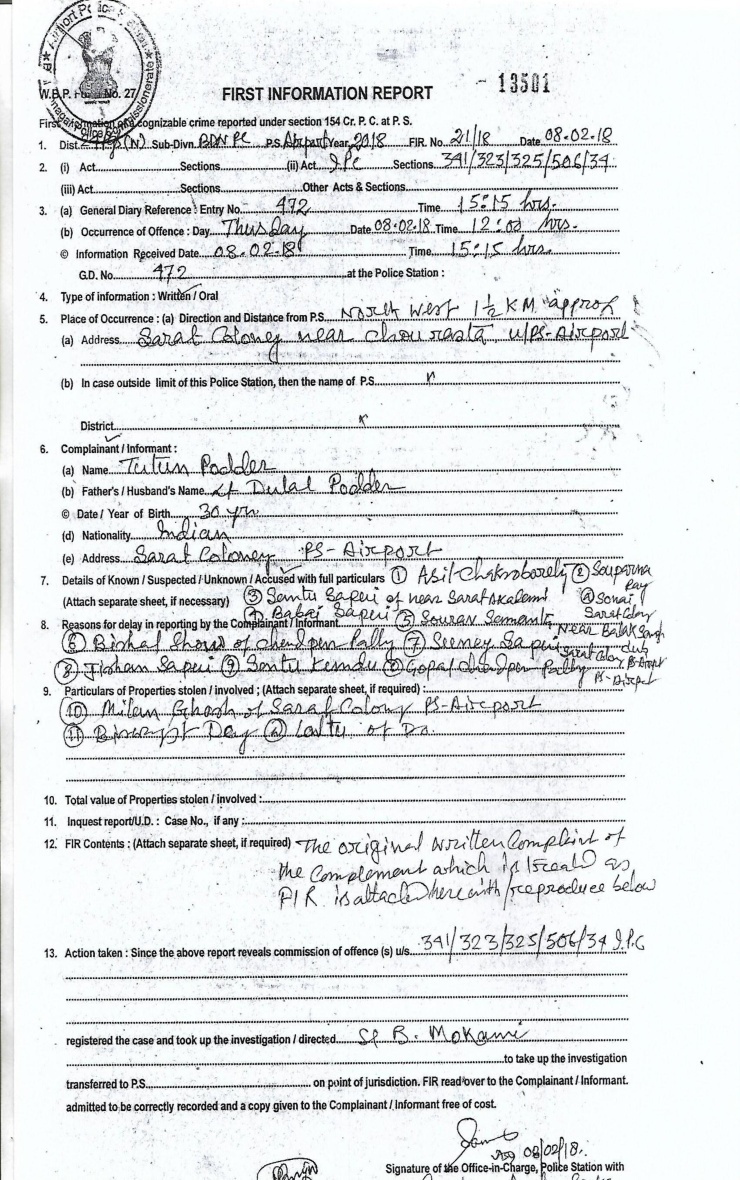 Airport Police Station
W.B.P. Form No. 27
- 13501
FIRST INFORMATION REPORT
First Information of cognizable crime reported under section 154 Cr. P. C. at P. S.
1. Dist. (N) Sub-Divn. BDN PC P.S. Airport Year 2018 FIR. No. 21/18 Date 08-02-18
2. (i) Act Sections (ii) Act I.P.C Sections 341/323/325/506/34
(iii) Act Sections Other Acts & Sections
3. (a) General Diary Reference : Entry No. 472 Time 15:15 hrs.
(b) Occurrence of Offence : Day Thusday Date 08.02.18 Time 12:00 hrs.
© Information Received Date 08.02.18 Time 15:15 hrs.
G.D. No. 472 at the Police Station :
4. Type of information : Written / Oral
5. Place of Occurrence : (a) Direction and Distance from P.S. North West 1½ KM approx
(a) Address Sarat Coloney near chourasta u/PS-Airport
(b) In case outside limit of this Police Station, then the name of P.S.
District
6. Complainant / Informant :
(a) Name Tutun Podder
(b) Father's / Husband's Name Lt Dulal Podder
© Date / Year of Birth 30 yrs.
(d) Nationality Indian
(e) Address Sarat Coloney PS- Airport
7. Details of Known / Suspected / Unknown / Accused with full particulars ① Asit Chakroborety ② Souparna Ray
(Attach separate sheet, if necessary) ③ Santu Saperi of near Sarat Akademi ④ Sonai Sarat Colony
④ Babai Saperi ⑤ Sourav Samanta Near Balak Sangha
8. Reasons for delay in reporting by the Complainant / Informant
⑥ Bishal Show of chendpen Pally ⑦ Seeney Saperi Sarat Colony
⑧ Jisham Saperi ⑨ Santu Kundu Gopal chendpen Pally PS-Airport
9. Particulars of Properties stolen / involved ; (Attach separate sheet, if required) :
⑩ Milan Ghosh of Sarat Colony PS-Airport
⑪ Biswajit Dey ⑫ Laltu of Do.
10. Total value of Properties stolen / involved :
11. Inquest report/U.D. : Case No., if any :
12. FIR Contents : (Attach separate sheet, if required) The original written Complaint of
the Complement which is treated as
FIR is attached herewith/reproduce below
13. Action taken : Since the above report reveals commission of offence (s) u/s 341/323/325/506/34 I.P.C
registered the case and took up the investigation / directed SI B. Mokami
to take up the investigation
transferred to P.S. on point of jurisdiction. FIR read over to the Complainant / Informant.
admitted to be correctly recorded and a copy given to the Complainant / Informant free of cost.
08/02/18.
Signature of the Office-in-Charge, Police Station with